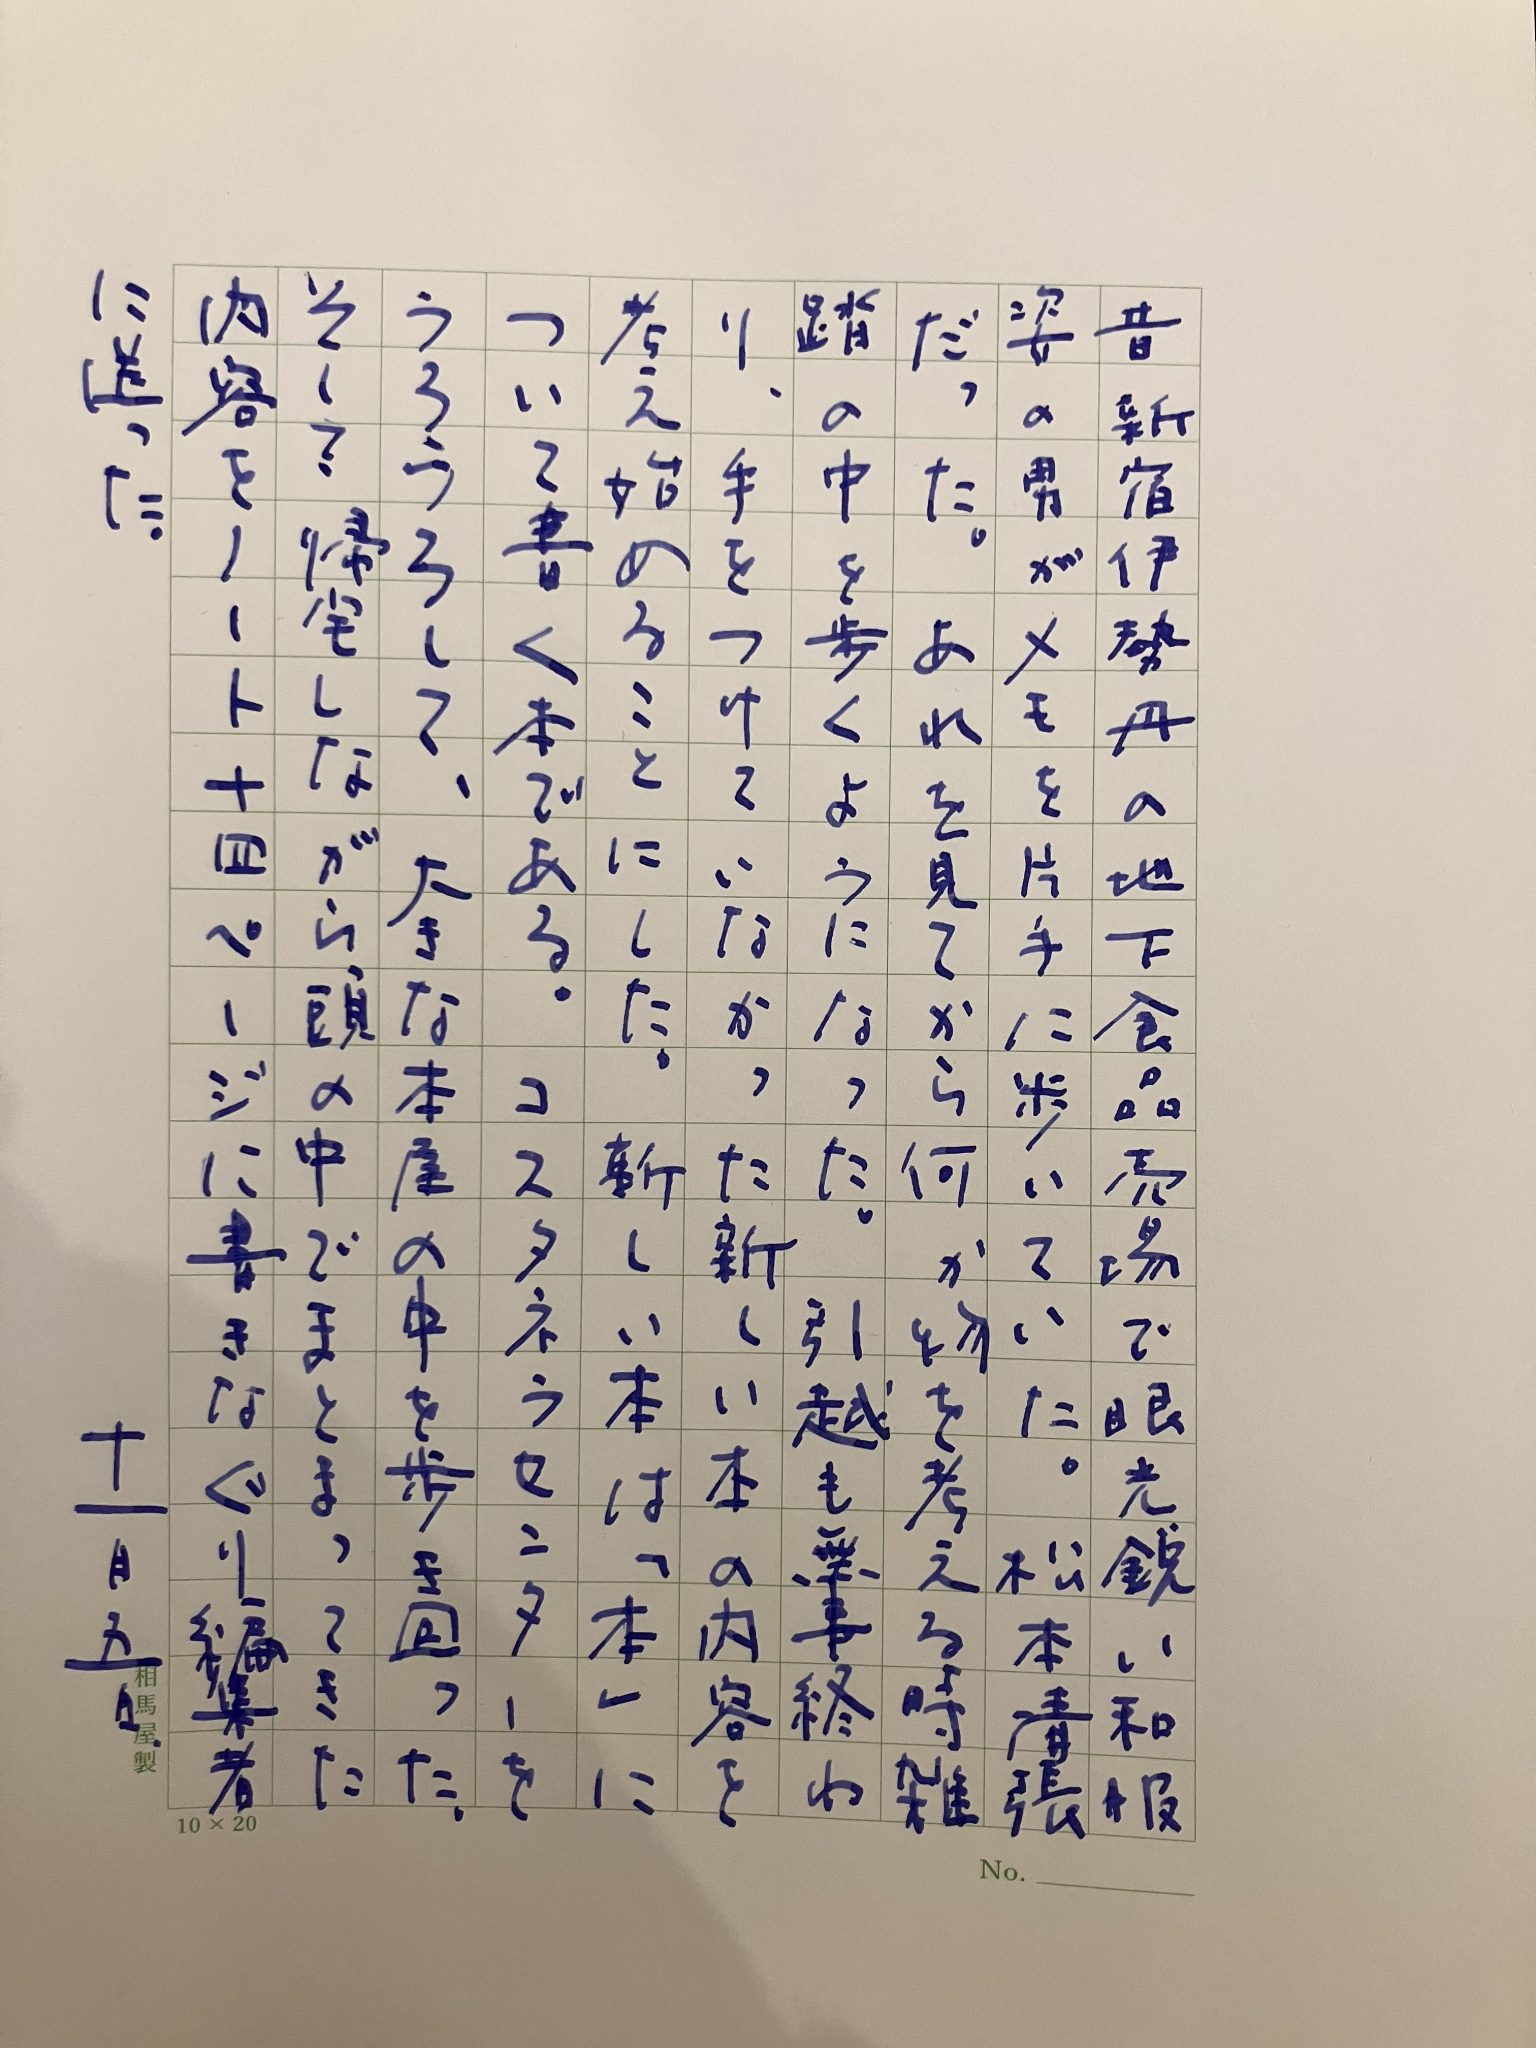 昔新宿伊勢丹の地下食品売場で眼光鋭い和服
姿の男がメモを片手に歩いていた。松本清張
だった。あれを見てから何か物を考える時雑
踏の中を歩くようになった。引越も無事終わ
り、手をつけていなかった新しい本の内容を
考え始めることにした。新しい本は「本」に
ついて書く本である。コスタネラセンターを
うろうろして、大きな本屋の中を歩き回った。
そして帰宅しながら頭の中でまとまってきた
内容をノート十四ページに書きなぐり編集者
に送った。
十一月五日
相馬屋製
10×20
No.